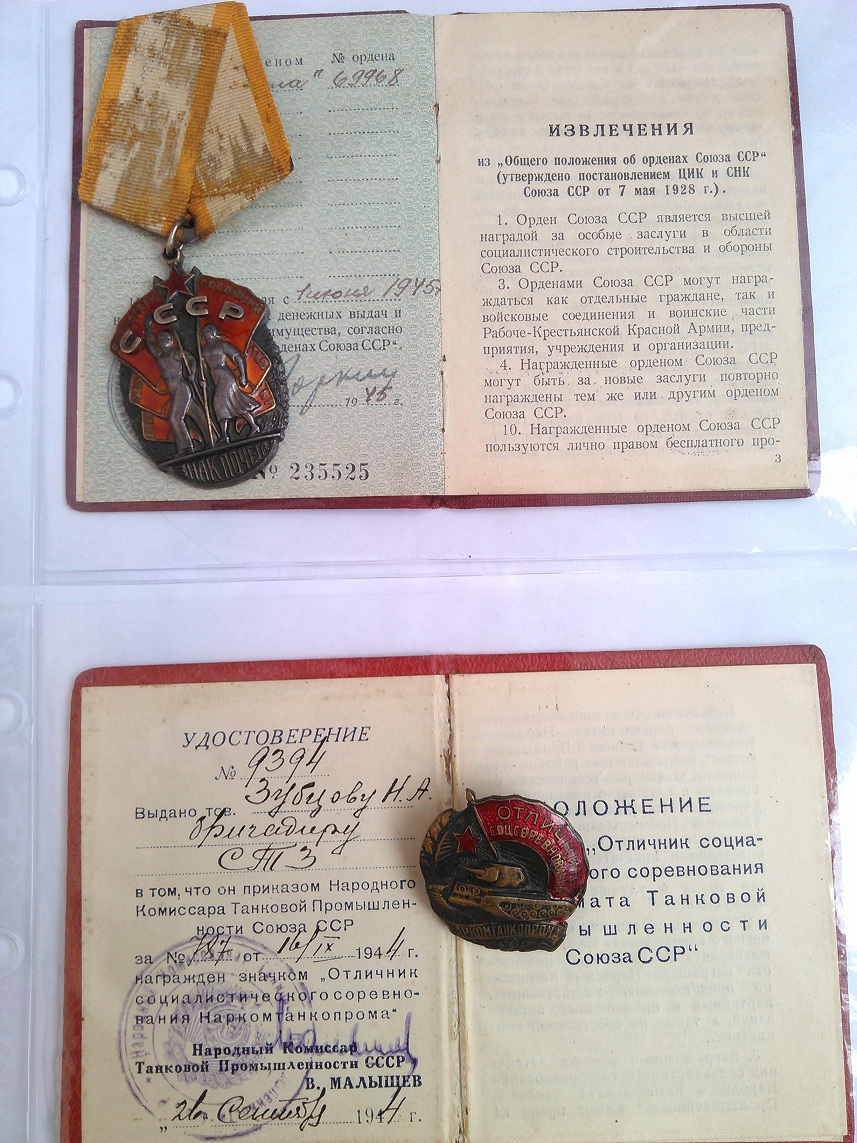 еном № ордена
69968
ИЗВЛЕЧЕНИЯ
из „Общего положения об орденах Союза ССР“
(утверждено постановлением ЦИК и СНК
Союза ССР от 7 мая 1928 г.).
1. Орден Союза ССР является высшей
наградой за особые заслуги в области
социалистического строительства и обороны
Союза ССР.
3. Орденами Союза ССР могут награ-
ждаться как отдельные граждане, так и
войсковые соединения и воинские части
Рабоче-Крестьянской Красной Армии, пред-
приятия, учреждения и организации.
4. Награжденные орденом Союза ССР
могут быть за новые заслуги повторно
награждены тем же или другим орденом
Союза ССР.
10. Награжденные орденом Союза ССР
пользуются лично правом бесплатного про-
3
ая с 1 июня 1945
денежных выдач и
имущества, согласно
орденах Союза ССР“.
1945 г.
№ 235525
СССР
ЗНАК ПОЧЕТА
УДОСТОВЕРЕНИЕ
№ 9394
Выдано тов. Зубцову Н. А.
бригадиру
СТЗ
в том, что он приказом Народного
Комиссара Танковой Промышлен-
ности Союза ССР
за № 787 от 16/IX 1944 г.
награжден значком „Отличник
социалистического соревно-
вания Наркомтанкопрома“
Народный Комиссар
Танковой Промышленности СССР
В. МАЛЫШЕВ
„26 Сентябр 1944 г.
ОТЛИЧН
СОЦСОРЕВНОВ
АРКОМТАНКОПРОМ
ОЛОЖЕНИЕ
„Отличник социа-
ого соревнования
мата Танковой
мышленности
Союза ССР“